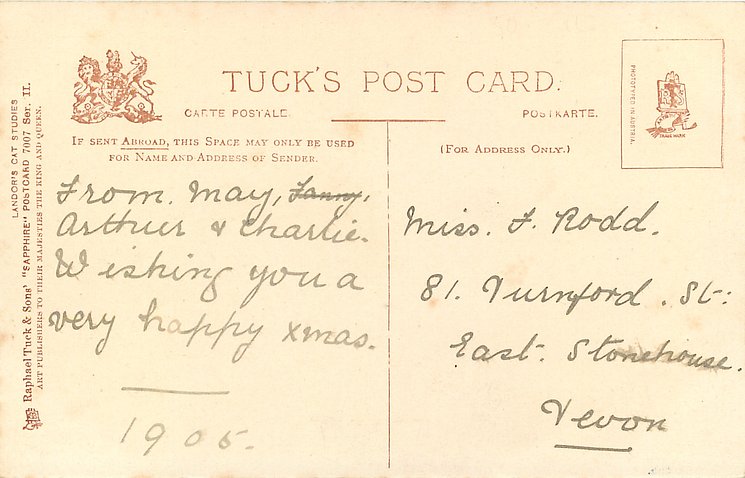 TUCK'S POST CARD.
CARTE POSTALE.
POSTKARTE.
IF SENT ABROAD, THIS SPACE MAY ONLY BE USED
FOR NAME AND ADDRESS OF SENDER.
(FOR ADDRESS ONLY.)
PHOTOTYPED IN AUSTRIA.
TRADE MARK
LANDOR'S CAT STUDIES
Raphael Tuck & Sons' "SAPPHIRE" POSTCARD 7007 Ser. II.
ART PUBLISHERS TO THEIR MAJESTIES THE KING AND QUEEN.
From. May, Fanny,
Arthur & Charlie.
Wishing you a
very happy xmas.
1905.
Miss. F. Rodd.
81. Durnford. St:
East. Stonehouse.
Devon